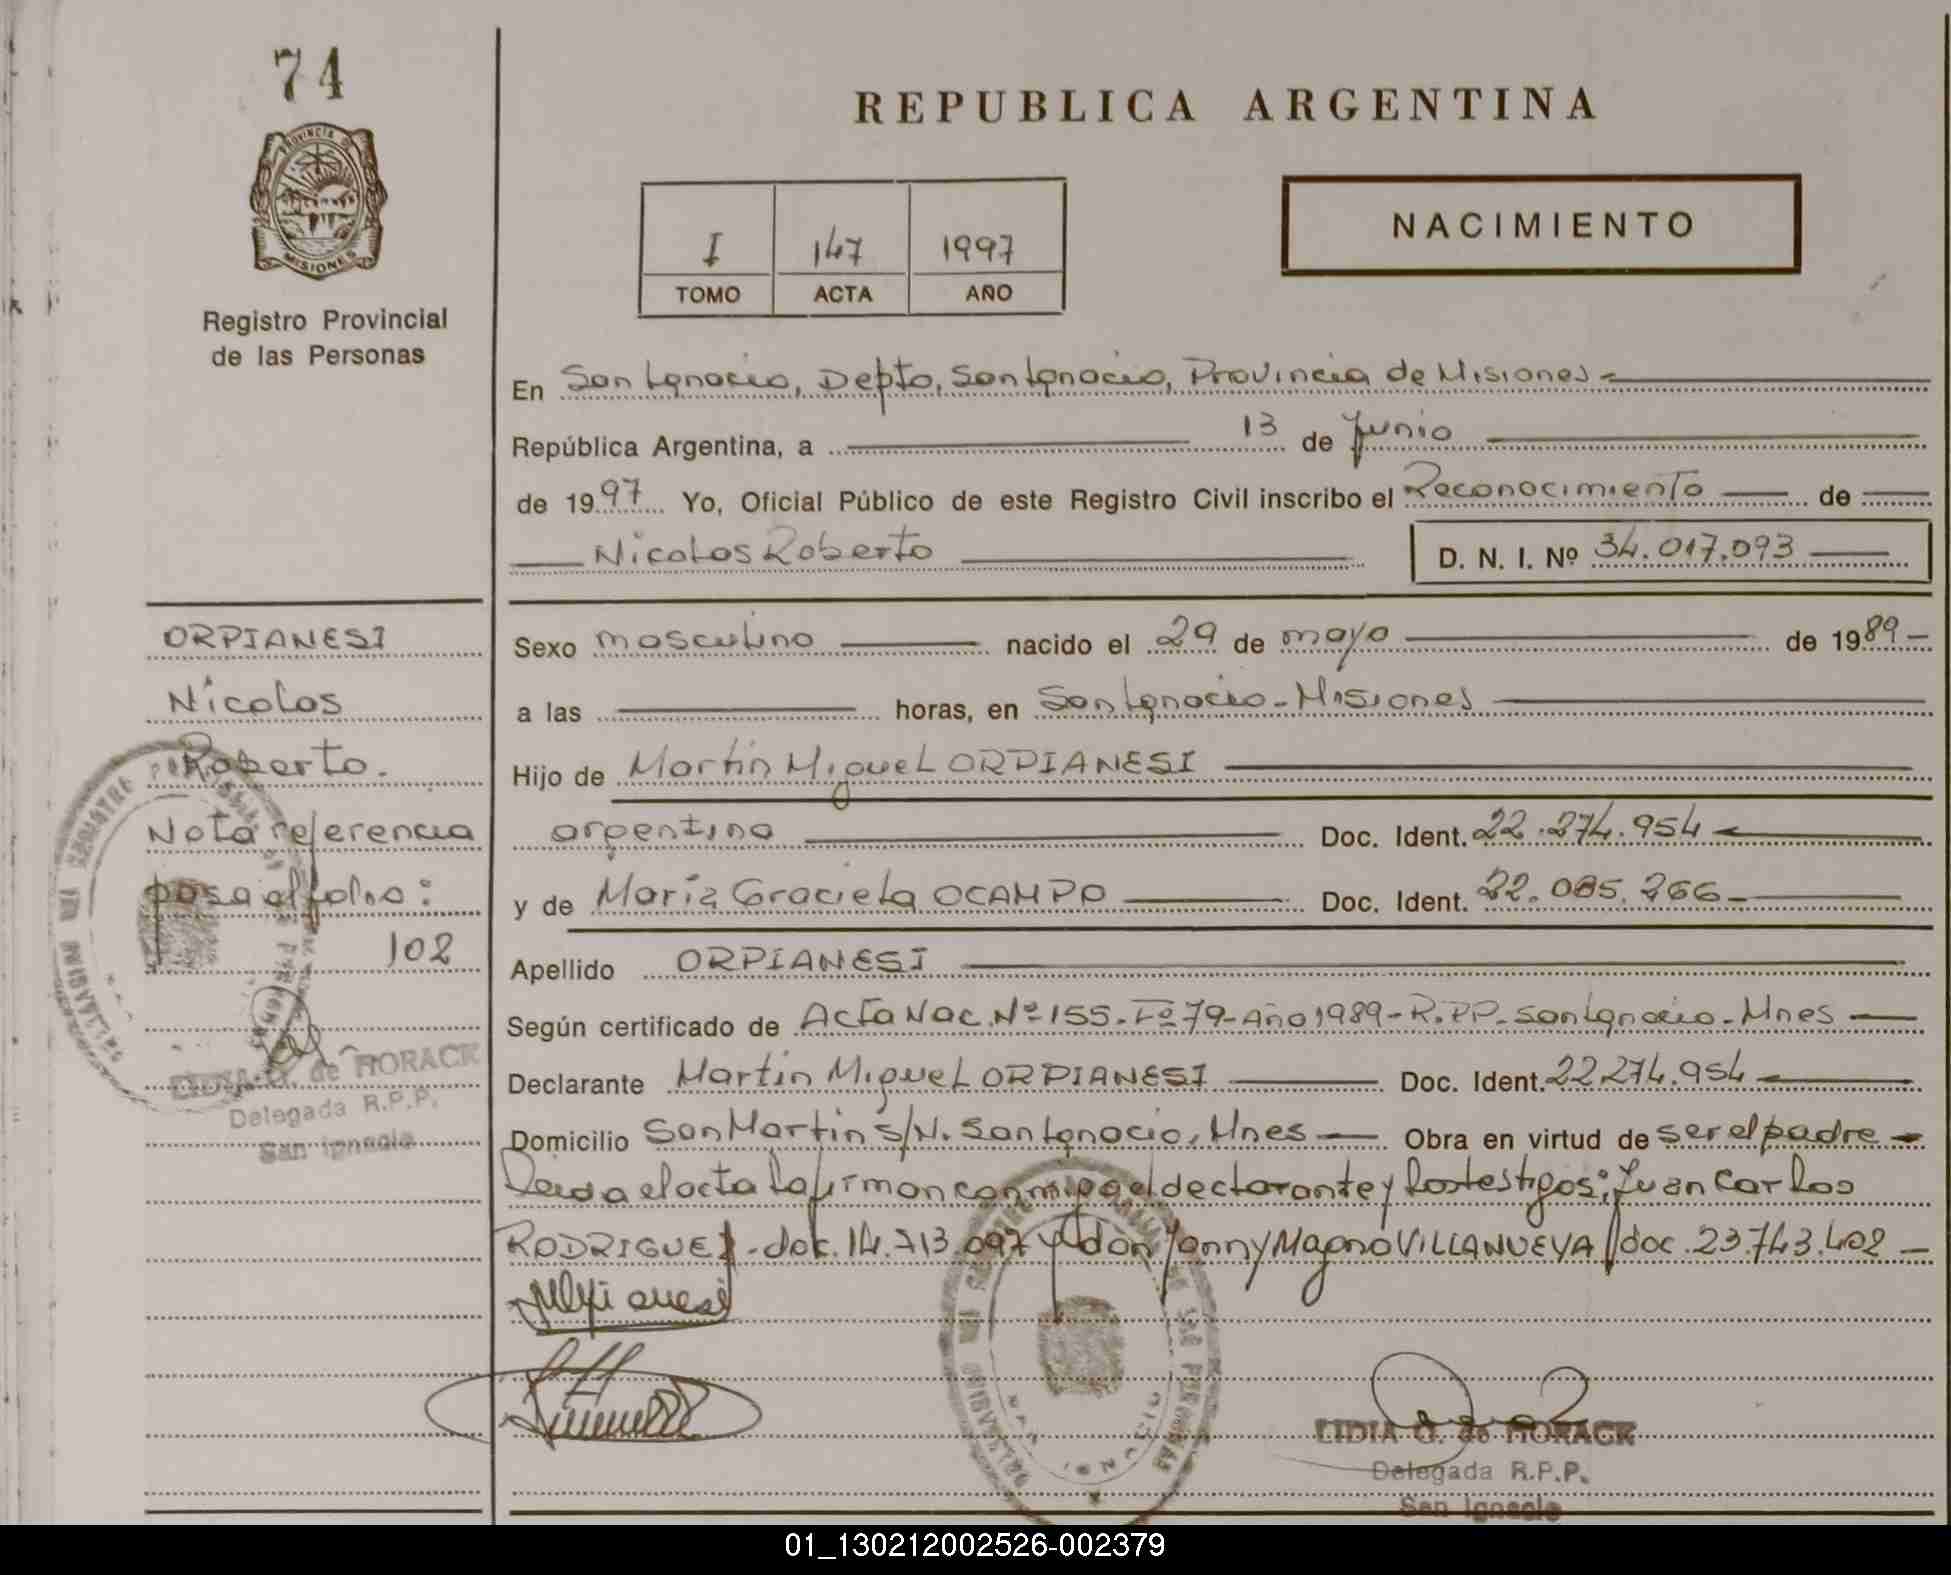 74
PROVINCIA DE
MISIONES
Registro Provincial
de las Personas
REPUBLICA ARGENTINA
I 147 1997
TOMO ACTA AÑO
NACIMIENTO
En San Ignacio, Depto, San Ignacio, Provincia de Misiones
República Argentina, a 13 de Junio
de 1997 Yo, Oficial Público de este Registro Civil inscribo el Reconocimiento de
Nicolas Roberto D. N. I. Nº 34.017.093
ORPIANESI
Nicolas
Roberto.
Nota referencia
pasa al folio:
102
LIDIA O. de HORACK
Delegada R.P.P.
San Ignacio
Sexo masculino nacido el 29 de mayo de 1989
a las horas, en San Ignacio - Misiones
Hijo de Martin Miguel ORPIANESI
argentino Doc. Ident. 22.274.954
y de María Graciela OCAMPO Doc. Ident. 22.085.266
Apellido ORPIANESI
Según certificado de Acta Nac. Nº 155 - Fº 79 - Año 1989 - R.P.P. San Ignacio - Mnes
Declarante Martin Miguel ORPIANESI Doc. Ident. 22274.954
Domicilio San Martin s/N. San Ignacio, Mnes Obra en virtud de ser el padre
Leida el acta la firman conmigo el declarante y los testigos: Juan Carlos
RODRIGUEZ - dok. 14.713.097 y don Yonny Magno VILLANUEVA doc. 23.743.402
LIDIA O. de HORACK
Delegada R.P.P.
San Ignacio
01_130212002526-002379